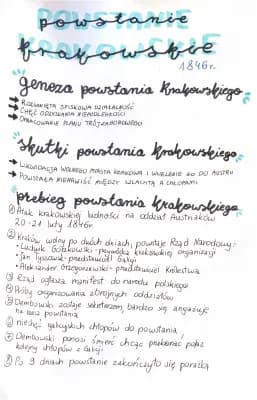 powstanie
krakowskie
1846r.
geneza powstania krakowskiego
→ ROZWINIĘTA SPISKOWA DZIAŁALNOŚĆ
→ CHĘĆ ODZYSKANIA NIEPODLEGŁOŚCI
→ OPRACOWANIE PLANU TRÓJZABOROWEGO
skutki powstania krakowskiego
→ LIKWIDACJA WOLNEGO MIASTA KRAKOWA I WCIELENIE GO DO AUSTRII
→ POWSTAŁA NIENAWIŚĆ MIĘDZY SZLACHTĄ A CHŁOPAMI
przebieg powstania krakowskiego
① Atak krakowskiej ludności na oddział Austriaków
20-21 luty 1846r.
② Kraków wolny po dwóch dniach, powstaje Rząd Narodowy:
• Ludwik Gorzkowski - przywódca krakowskiej organizacji
• Jan Tyssowski - przedstawiciel Galicji
• Aleksander Grzegorzewski - przedstawiciel Królestwa
③ Rząd ogłasza manifest do narodu polskiego
④ Próby organizowania zbrojnych oddziałów
⑤ Dembowski zostaje sekretarzem, bardzo się angażuje
na rzecz powstania
⑥ niechęć galicyjskich chłopów do powstania
⑦ Dembowski ponosi śmierć chcąc przekonać
kolejny chłopów z Galicji
⑧ Po 9 dniach powstanie zakończyło się porażką